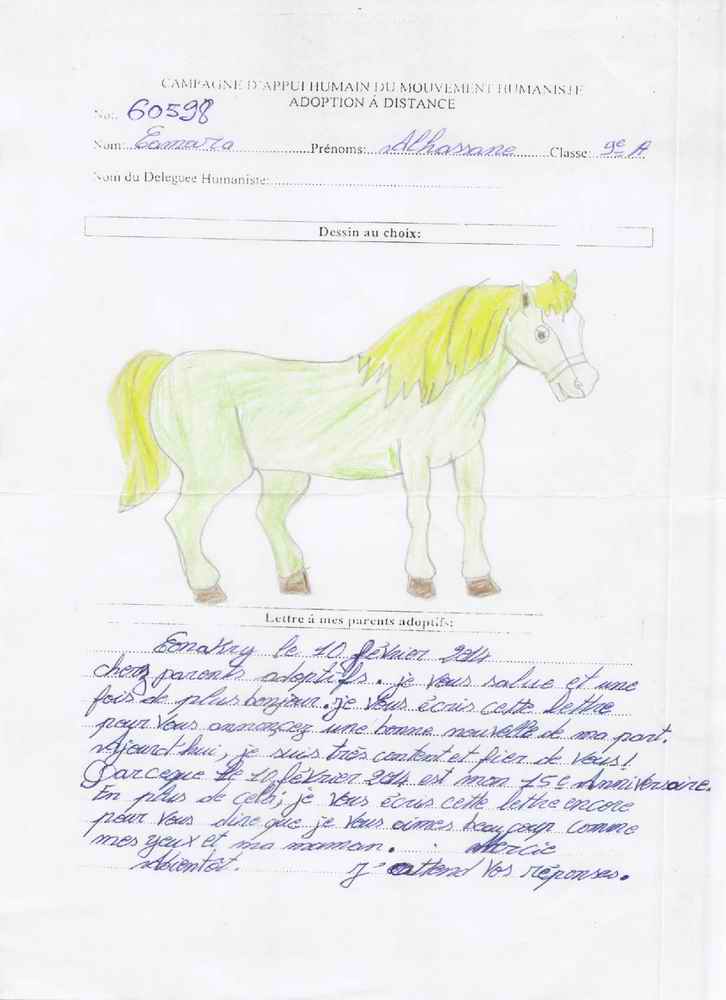 CAMPAGNE D'APPUI HUMAIN DU MOUVEMENT HUMANISTE
ADOPTION Á DISTANCE
No: 60598
Nom: Camara Prénoms: Alhassane Classe: 9e A
Nom du Deleguee Humaniste:
Dessin au choix:
Lettre á mes parents adoptifs:
Conakry le 10 février 2014
cherz parents adoptifs. je vous salue et une
fois de plus bonjour. je vous écris cette lettre
pour vous annonçez une bonne nouvelle de ma part.
Aujourd'hui, je suis très content et fier de vous!
Parceque le 10 février 2014 est mon 15e Anniversaire.
En plus de cela, je vous écris cette lettre encore
pour vous dire que je vous aimes beaucoup comme
mes yeux et ma maman. Mercie
Abientôt. J'attend vos réponses.